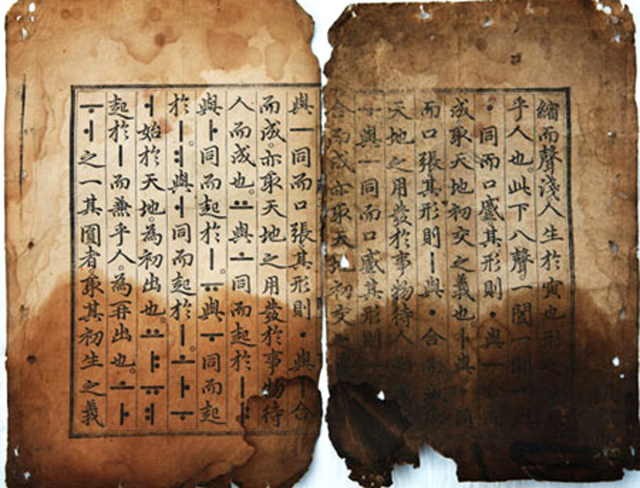 縮而聲淺人生於寅也形
乎人也。此下八聲一闔一
ㆍ同而口蹙其形則ㆍ與ㅡ合而
成取天地初交之義也ㅏ與ㆍ同
而口張其形則ㅣ與ㆍ合而成
天地之用發於事物待人
ㅜ與ㅡ同而口蹙其形則
合而成亦取天地初交之
與ㅡ同而口張其形則ㆍ與ㅣ合
而成。亦取天地之用發於事物待
人而成也。ㅛ與ㅗ同而起於ㅣ。ㅑ
與ㅏ同而起於ㅣ。ㅠ與ㅜ同而起
於ㅣ。ㅕ與ㅓ同而起於ㅣ。ㅗㅏㅜ
ㅓ始於天地。為初出也。ㅛㅑㅠㅕ
起於ㅣ而兼乎人。為再出也。ㅗㅏ
ㅜㅓ之一其圓者。取其初生之義